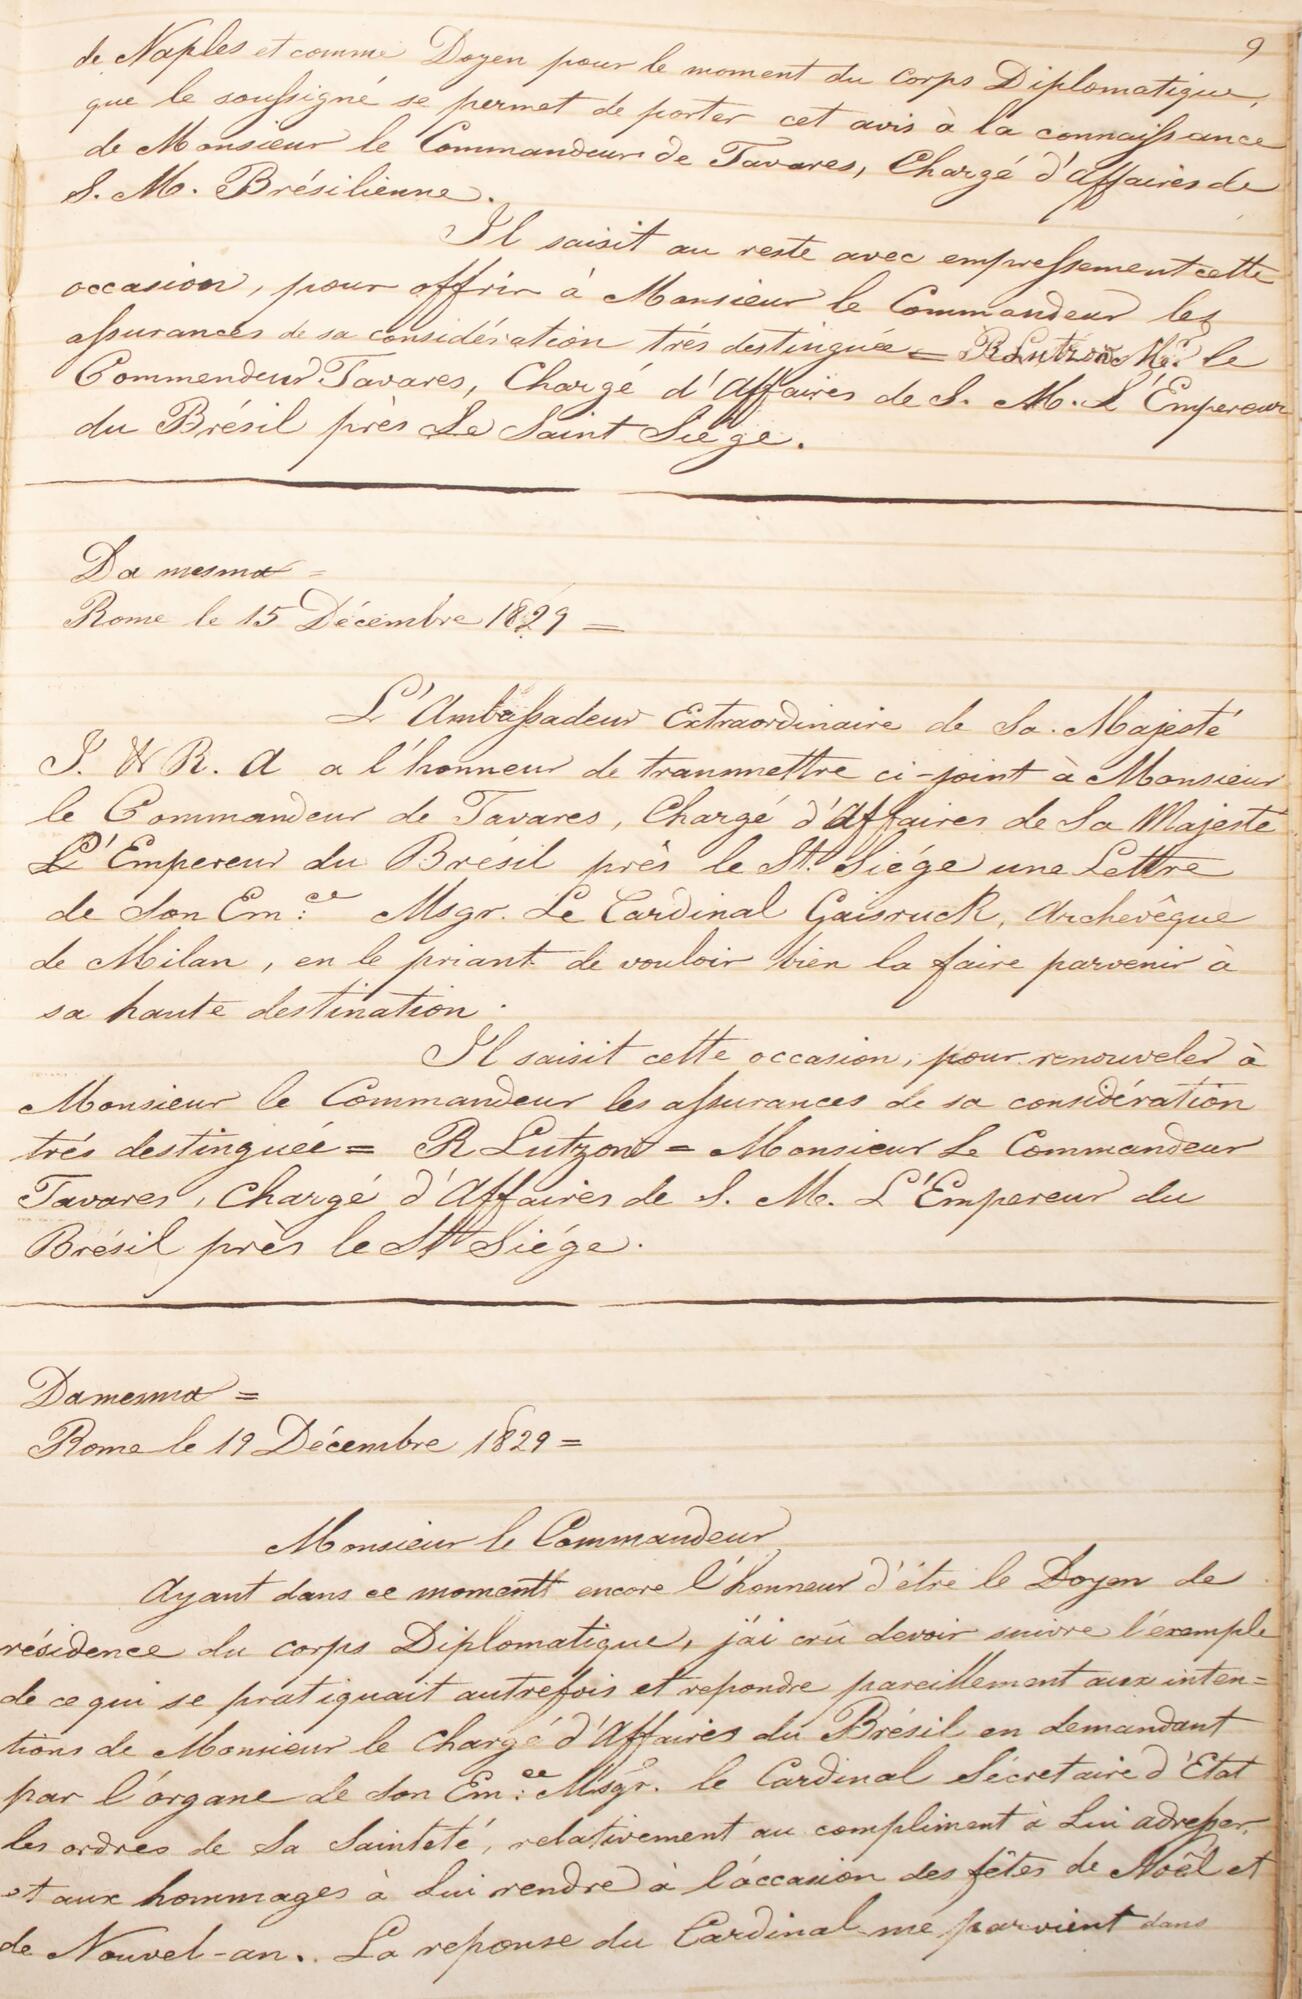 9
de Naples et comme Doyen pour le moment du corps Diplomatique,
que le soussigné se permet de porter cet avis à la connaissance
de Monsieur le Commandeur de Tavares, Chargé d'Affaires de
S. M. Brésilienne.
Il saisit au reste avec empressement cette
occasion, pour offrir à Monsieur le Commandeur les
assurances de sa considération trés destinguée = R Lutzow Mr. le
Commendeur Tavares, Chargé d'Affaires de S. M. L'Empereur
du Brésil près Le Saint Siége.
Da mesma =
Rome le 15 Décembre 1829 =
L'Ambassadeur Extraordinaire de Sa. Majesté
I. & R. A a l'honneur de transmettre ci-joint à Monsieur
le Commandeur de Tavares, Chargé d'Affaires de Sa Majesté
L'Empereur du Brésil près le St. Siége une Lettre
de Son Em:ce Msgr. Le Cardinal Gaisruck, Archevêque
de Milan, en le priant de vouloir bien la faire parvenir à
sa haute destination.
Il saisit cette occasion, pour renouveler à
Monsieur le Commandeur les assurances de sa considération
trés destinguée = R Lutzow = Monsieur Le Commandeur
Tavares, Chargé d'Affaires de S. M. L'Empereur du
Brésil près le St Siége.
Da mesma =
Rome le 19 Décembre 1829 =
Monsieur le Commandeur,
Ayant dans ce moment encore l'honneur d'être le Doyen de
résidence du corps Diplomatique, j'ai crû devoir suivre l'éxemple
de ce qui se pratiquait autrefois et repondre pareillement aux inten=
tions de Monsieur le Chargé d'Affaires du Brésil en demandant
par l'órgane de Son Em:ce Msgr. le Cardinal Sécretaire d'Etat
les ordres de Sa Sainteté, relativement au compliment à Lui adresser,
et aux hommages à Lui rendre à l'óccasion des fêtes de Noël et
de Nouvel-an. La reponse du Cardinal me parvient dans